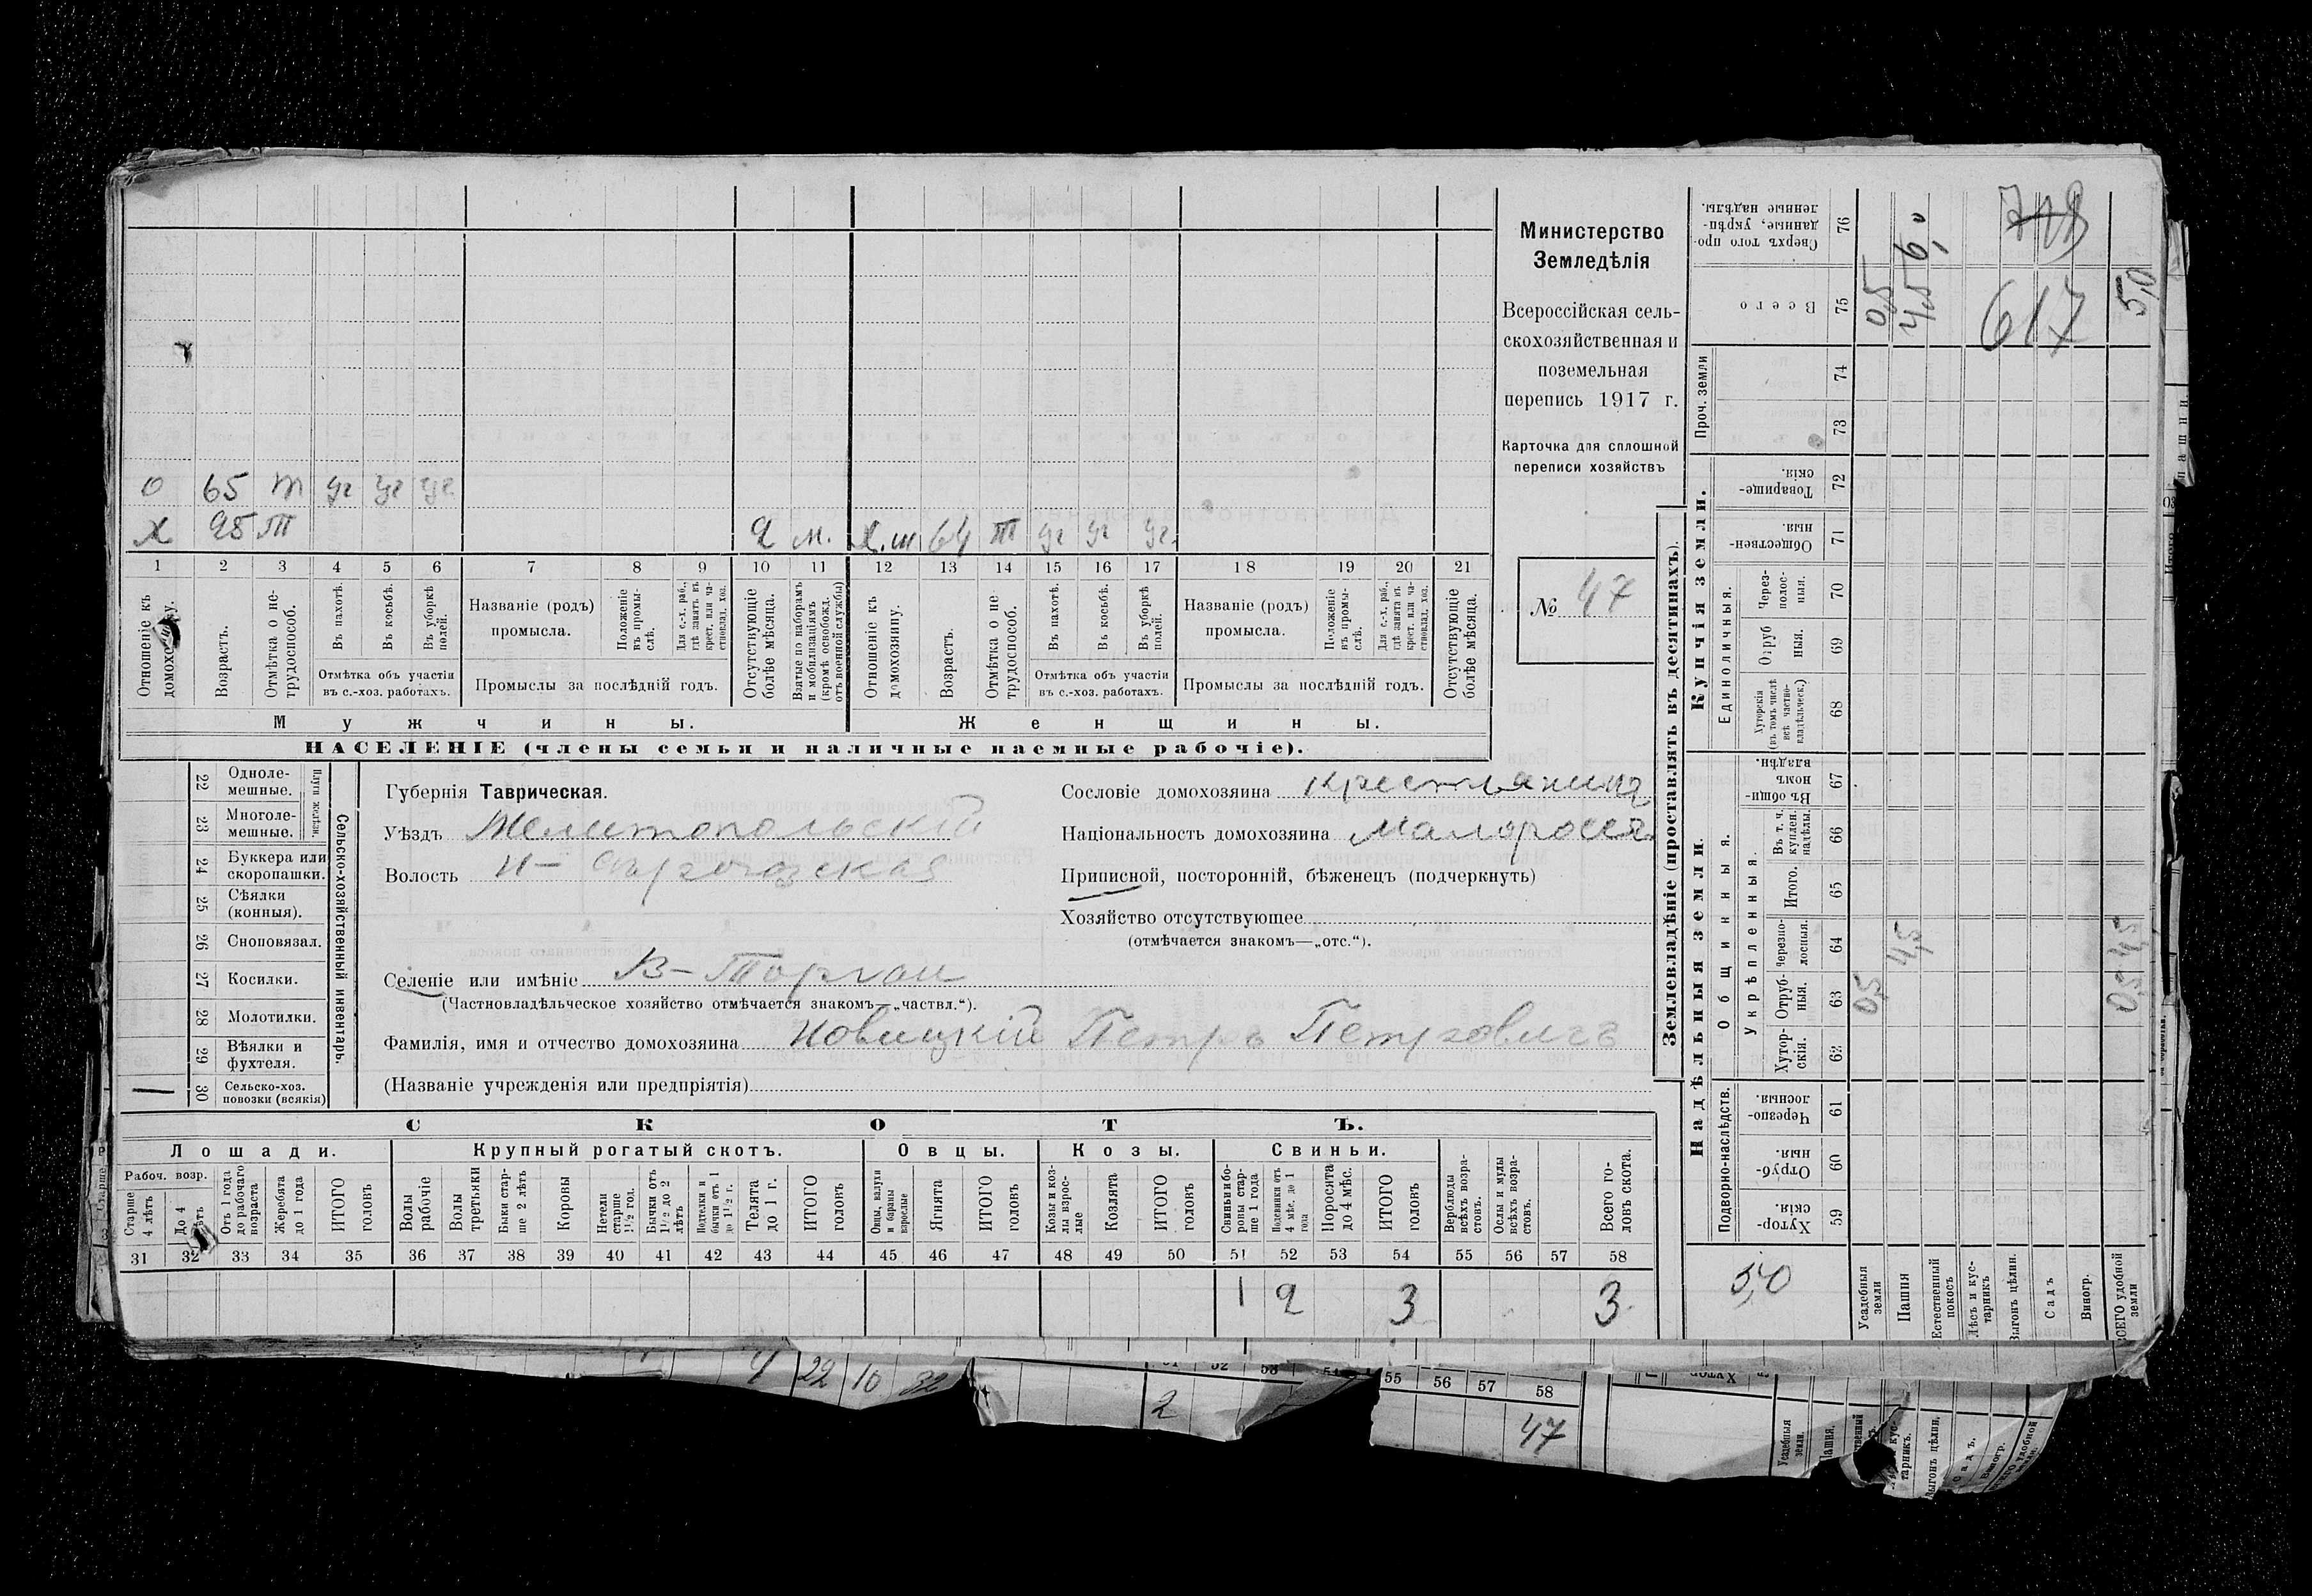 О 65 т уч уч уч
Х 25 т 2 м. Х.ш 64 т уч уч уч.
1 2 3 4 5 6 7 8 9 10 11 12 13 14 15 16 17 18 19 20 21
Отношеніе къ домохозяину.
Возрастъ.
Отмѣтка о нетрудоспособ.
Въ пахотѣ.
Въ косьбѣ.
Въ уборкѣ полей.
Отмѣтка объ участіи
въ с.-хоз. работахъ.
Названіе (родъ)
промысла.
Положеніе въ промыслѣ.
Для с.-х. раб., гдѣ занятъ въ крест. или частновлад. хоз.
Промыслы за послѣдній годъ.
Отсутствующіе болѣе мѣсяца.
Взятые по наборамъ и мобилизаціямъ (кромѣ освобожд. отъ военной службы)
Отношеніе къ домохозяину.
Возрастъ.
Отмѣтка о нетрудоспособ.
Въ пахотѣ.
Въ косьбѣ.
Въ уборкѣ полей.
Отмѣтка объ участіи
въ с.-хоз. работахъ.
Названіе (родъ)
промысла.
Положеніе въ промыслѣ.
Для с.-х. раб., гдѣ занята въ крест. или частновлад. хоз.
Промыслы за послѣдній годъ.
Отсутствующіе болѣе мѣсяца.
Мужчины.
Женщины.
НАСЕЛЕНІЕ (члены семьи и наличные наемные рабочіе).
Министерство
Земледѣлія
Всероссійская сель-
скохозяйственная и
поземельная
перепись 1917 г.
Карточка для сплошной
переписи хозяйствъ
№ 47
22 Одноле-
мешные.
23 Многоле-
мешные.
Плуги желѣзн.
24 Буккера или
скоропашки.
25 Сѣялки
(конныя).
26 Сноповязал.
27 Косилки.
28 Молотилки.
29 Вѣялки и
фухтеля.
30 Сельско-хоз.
повозки (всякія)
Сельско-хозяйственный инвентарь.
Губернія Таврическая.
Уѣздъ Мелитопольскій
Волость
Сословіе домохозяина крестьянинъ
Національность домохозяина малороссъ
Приписной, посторонній, бѣженецъ (подчеркнуть)
Хозяйство отсутствующее
(отмѣчается знакомъ—„отс.“).
Селеніе или имѣніе В-Торгаи
(Частновладѣльческое хозяйство отмѣчается знакомъ—„частвл.“).
Фамилія, имя и отчество домохозяина Новицкій Петръ Петровичъ
(Названіе учрежденія или предпріятія)
СКОТЪ.
Лошади. Крупный рогатый скотъ. Овцы. Козы. Свиньи.
Рабоч. возр.
Старше 4 лѣтъ
До 4 лѣтъ
Отъ 1 года до рабочаго возраста
Жеребята до 1 года
ИТОГО головъ
Волы рабочіе
Волы третьяки
Быки старше 2 лѣтъ
Коровы
Нетели старше 1½ год.
Бычки отъ 1½ до 2 лѣтъ
Подтелки и бычки отъ 1 до 1½ г.
Телята до 1 г.
ИТОГО головъ
Овцы, валухи и бараны взрослые
Ягнята
ИТОГО головъ
Козы и козлы взрослые
Козлята
ИТОГО головъ
Свиньи и боровы старше 1 года
Подсвинки отъ 4 мѣс. до 1 года
Поросята до 4 мѣс.
ИТОГО головъ
Верблюды всѣхъ возрастовъ.
Ослы и мулы всѣхъ возрастовъ.
Всего головъ скота.
31 32 33 34 35 36 37 38 39 40 41 42 43 44 45 46 47 48 49 50 51 52 53 54 55 56 57 58
1 2 3 3
Землевладѣніе (проставлять въ десятинахъ).
Надѣльныя земли.
Купчія земли.
Проч. земли
Подворно-наслѣдств.
Общинныя.
Укрѣпленныя.
Единоличныя.
Хуторскія. 59
Отрубныя. 60
Черезполосныя. 61
Хуторскія. 62
Отрубныя. 63
Черезполосныя. 64
Итого. 65
Въ т. ч. куплен. надѣлы. 66
Въ общинномъ владѣн. 67
Хуторскія (въ томъ числѣ всѣ частновладѣльческ.) 68
Отрубныя. 69
Черезполосныя. 70
Общественныя. 71
Товарищескія. 72
73
74
Всего 75
Сверхъ того проданные, укрѣпленные надѣлы. 76
5,0
Усадебныя земли
Пашня
Естественный покосъ
Лѣсъ и кустарникъ
Выгонъ цѣлин.
Садъ
Виногр.
ВСЕГО удобной земли
0,5
4,5
0,5 4,5
0,5
4,5
617
5,0
4 22 10 32
2
52 53 54 55 56 57 58
47
Усадебныя земли.
Пашня.
Выгонъ цѣлин.
Садъ.
Виногр.